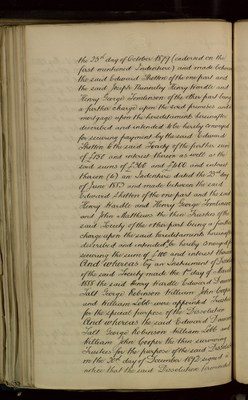 the 25th day of October 1879 (endorsed on the
first mentioned Indenture) and made between
the said Edward Shotton of the one part and
the said Joseph Nunneley Henry Hardle and
Henry George Tomlinson of the other part being
a further charge upon the said premises and
mortgage upon the hereditaments hereinafter
described and intended to be hereby conveyed
for securing payment by the said Edward
Shotton to the said Society of the further sum
of £150 and interest thereon as well as the
said sums of £300 and and interest
thereon (6) an Indenture dated the 23rd day
of June 1883 and made between the said
Edward Shotton of the one part and the said
Henry Hardle and Henry George Tomlinson
and John Matthews the then Trustees of the
said Society of the other part being a further
charge upon the said hereditaments hereinafter
described and intended to be hereby conveyed for
securing the sum of £100 and interest thereon
And whereas by an Instrument of Dissolution
of the said Society made the 1st day of March
1888 the said Henry Hardle Edward
George Robinson William John Cooper
and William Lobb were appointed Trustees
for the special purpose of the Dissolution
And whereas the said Edward
George Robinson William Lobb and
William John Cooper the then surviving
Trustees for the purpose of the said Dissolution
on the 30th day of December 1892 signed a
notice that the said Dissolution